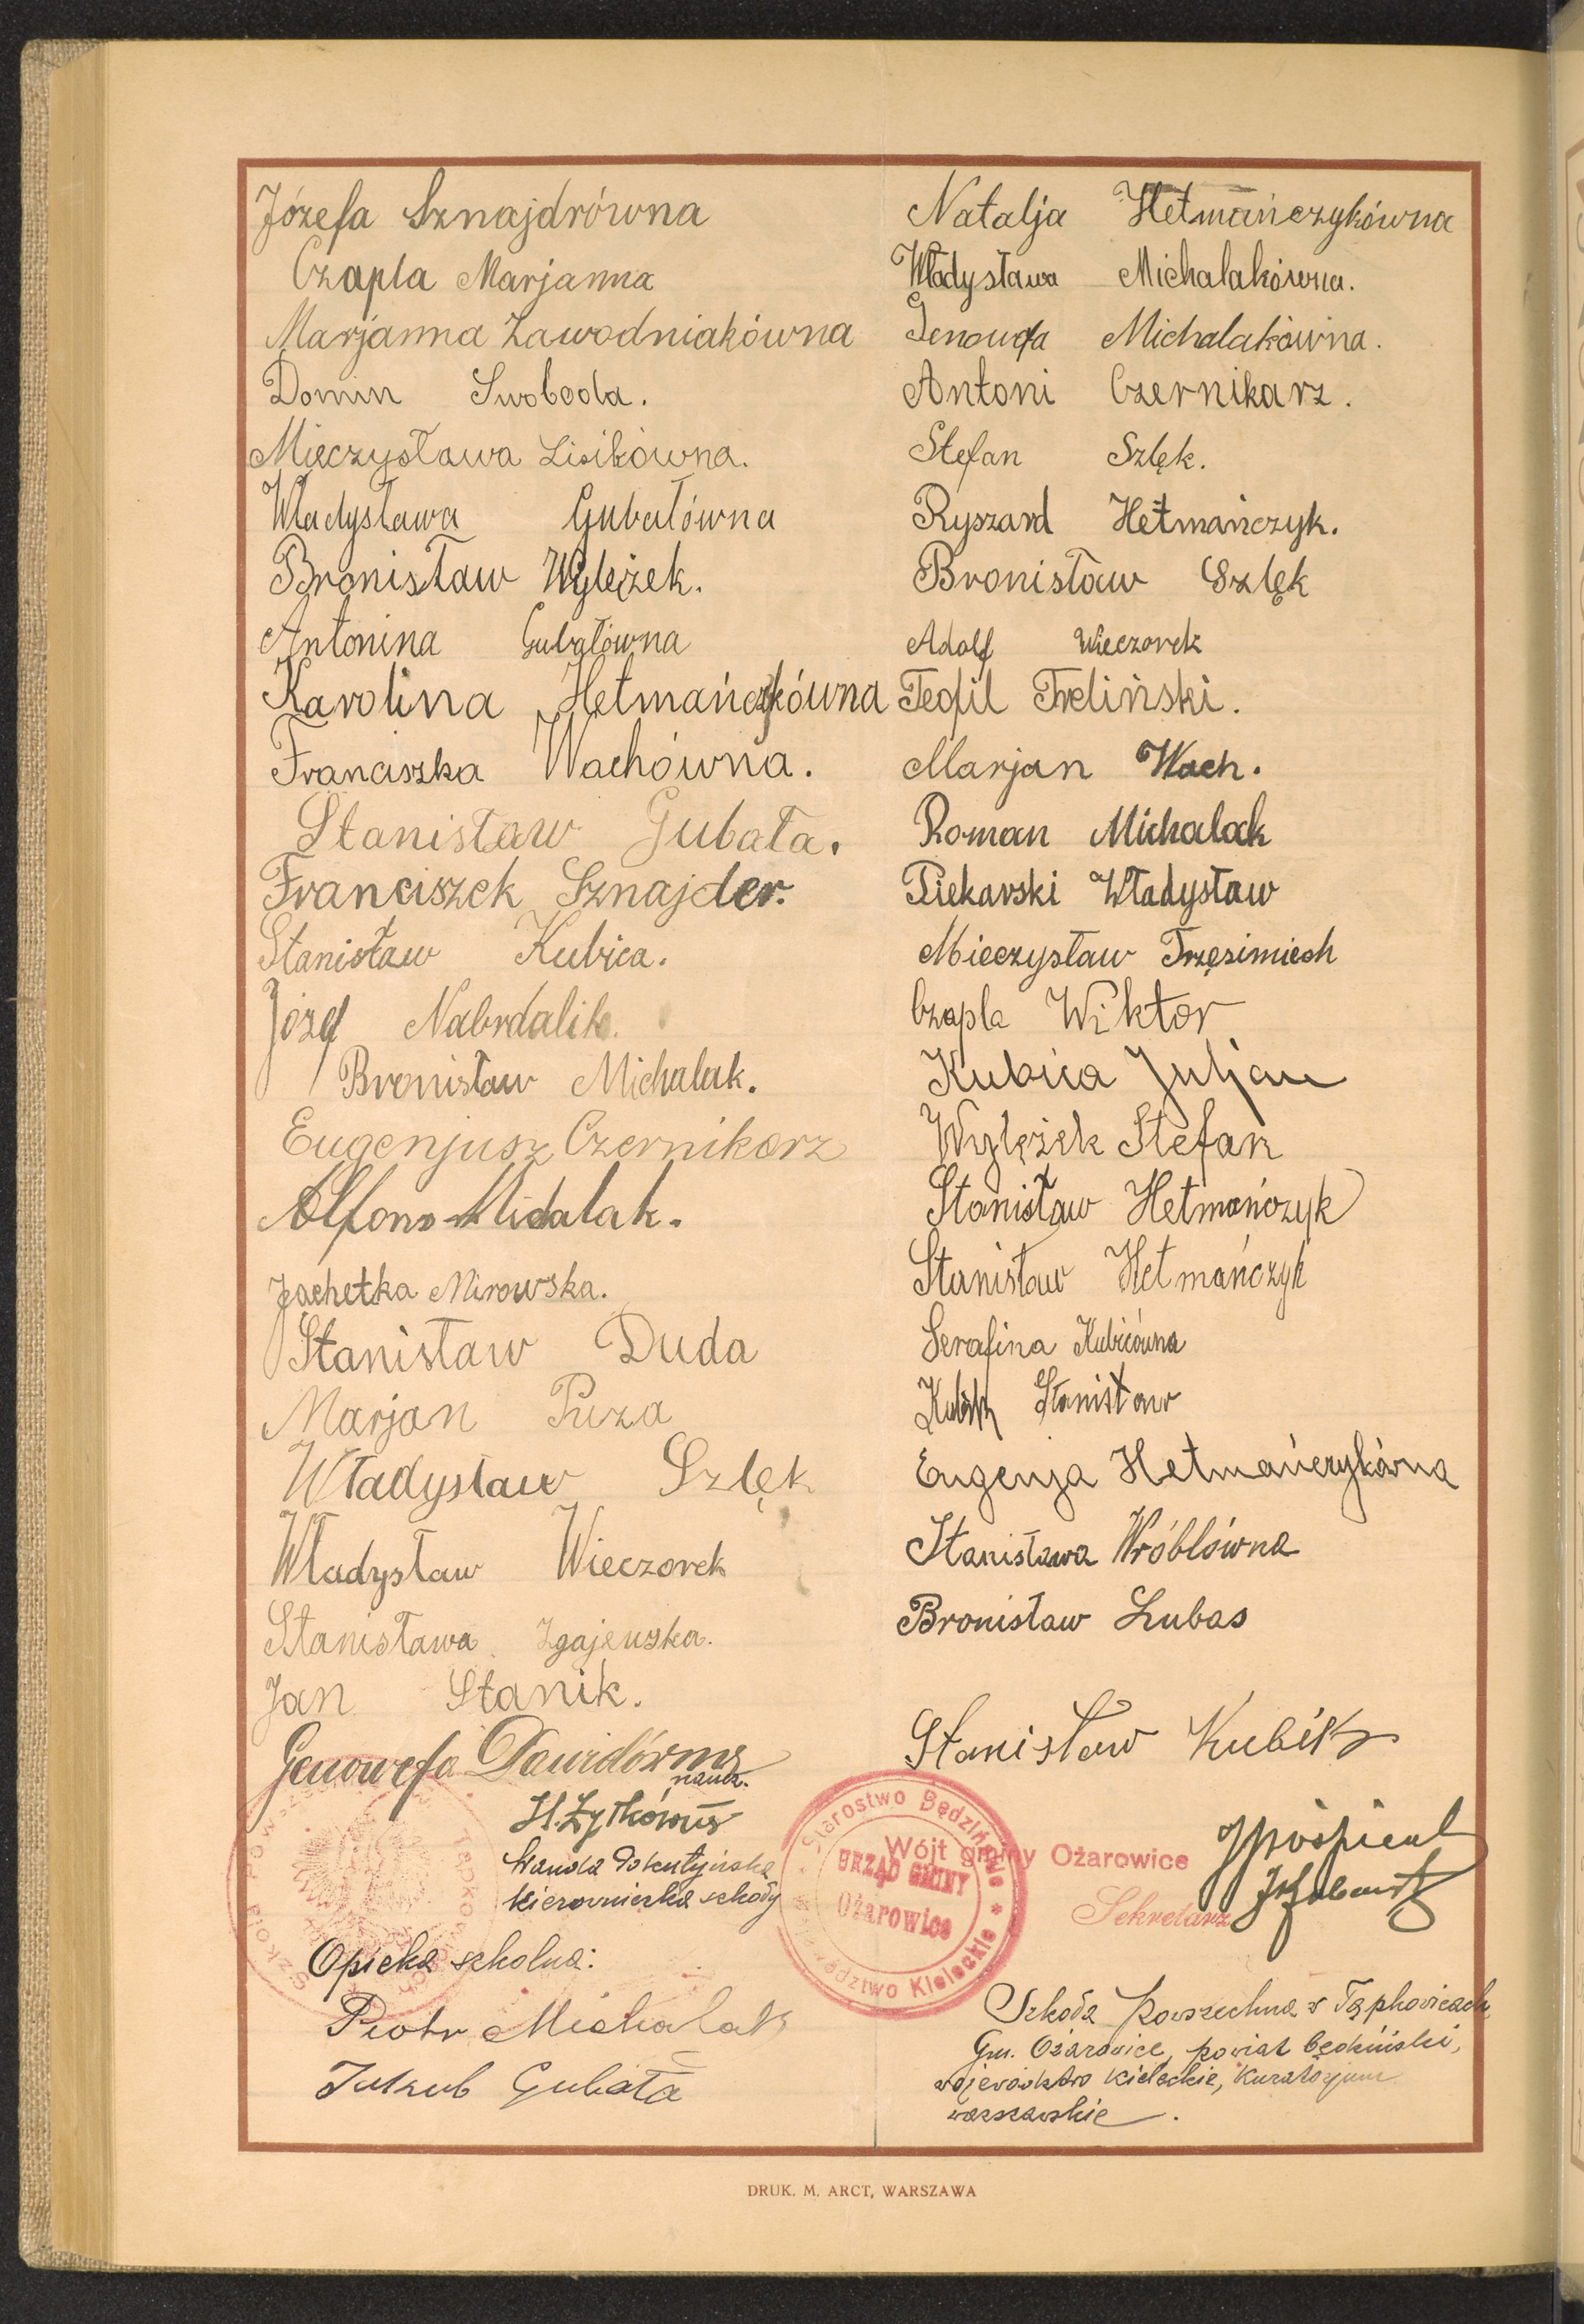 Józefa Sznajdrówna
Czapla Marjanna
Marjanna Zawodniakówna
Domin Swoboda.
Mieczysława Lisikówna.
Władysława Gubałówna
Bronisław Wylężek.
Antonina Gubałówna
Karolina Hetmańczykówna
Franciszka Wachówna.
Stanisław Gubała.
Franciszek Sznajder.
Stanisław Kubica.
Józef Nabrdalik.
Bronisław Michalak.
Eugenjusz Czernikarz
Alfons Michalak.
Jachetka Mirowska.
Stanisław Duda
Marjan Puza
Władysław Szlęk
Władysław Wieczorek
Stanisława Zgajewska.
Jan Stanik.
Genowefa Dawidówna
naucz.
H. Żytkówna
Wanda
kierowniczka szkoły
Opieka szkolna:
Piotr Michalak
Jakub Gubała
Natalja Hetmańczykówna
Władysława Michalakówna.
Genowefa Michalakówna.
Antoni Czernikarz.
Stefan Szlęk.
Ryszard Hetmańczyk.
Bronisław Szlęk
Adolf Wieczorek
Teofil Treliński.
Marjan Wach.
Roman Michalak
Piekarski Władysław
Mieczysław Trzęsimiech
Czapla Wiktor
Kubica Juljan
Wylężek Stefan
Stanisław Hetmańczyk
Stanisław Hetmańczyk
Serafina Kubicówna
Kubik Stanisław
Eugenja Hetmańczykówna
Stanisława Wróblówna
Bronisław Lubas
Stanisław Kubik
Starostwo Będzińskie * Województwo Kieleckie *
URZĄD GMINY
Ożarowice
Wójt gminy Ożarowice
Sekretarz
Szkoła Powszechna w Tąpkowicach
Gm. Ożarowice, powiat będziński,
województwo kieleckie, Kuratorjum
warszawskie.
DRUK. M. ARCT, WARSZAWA